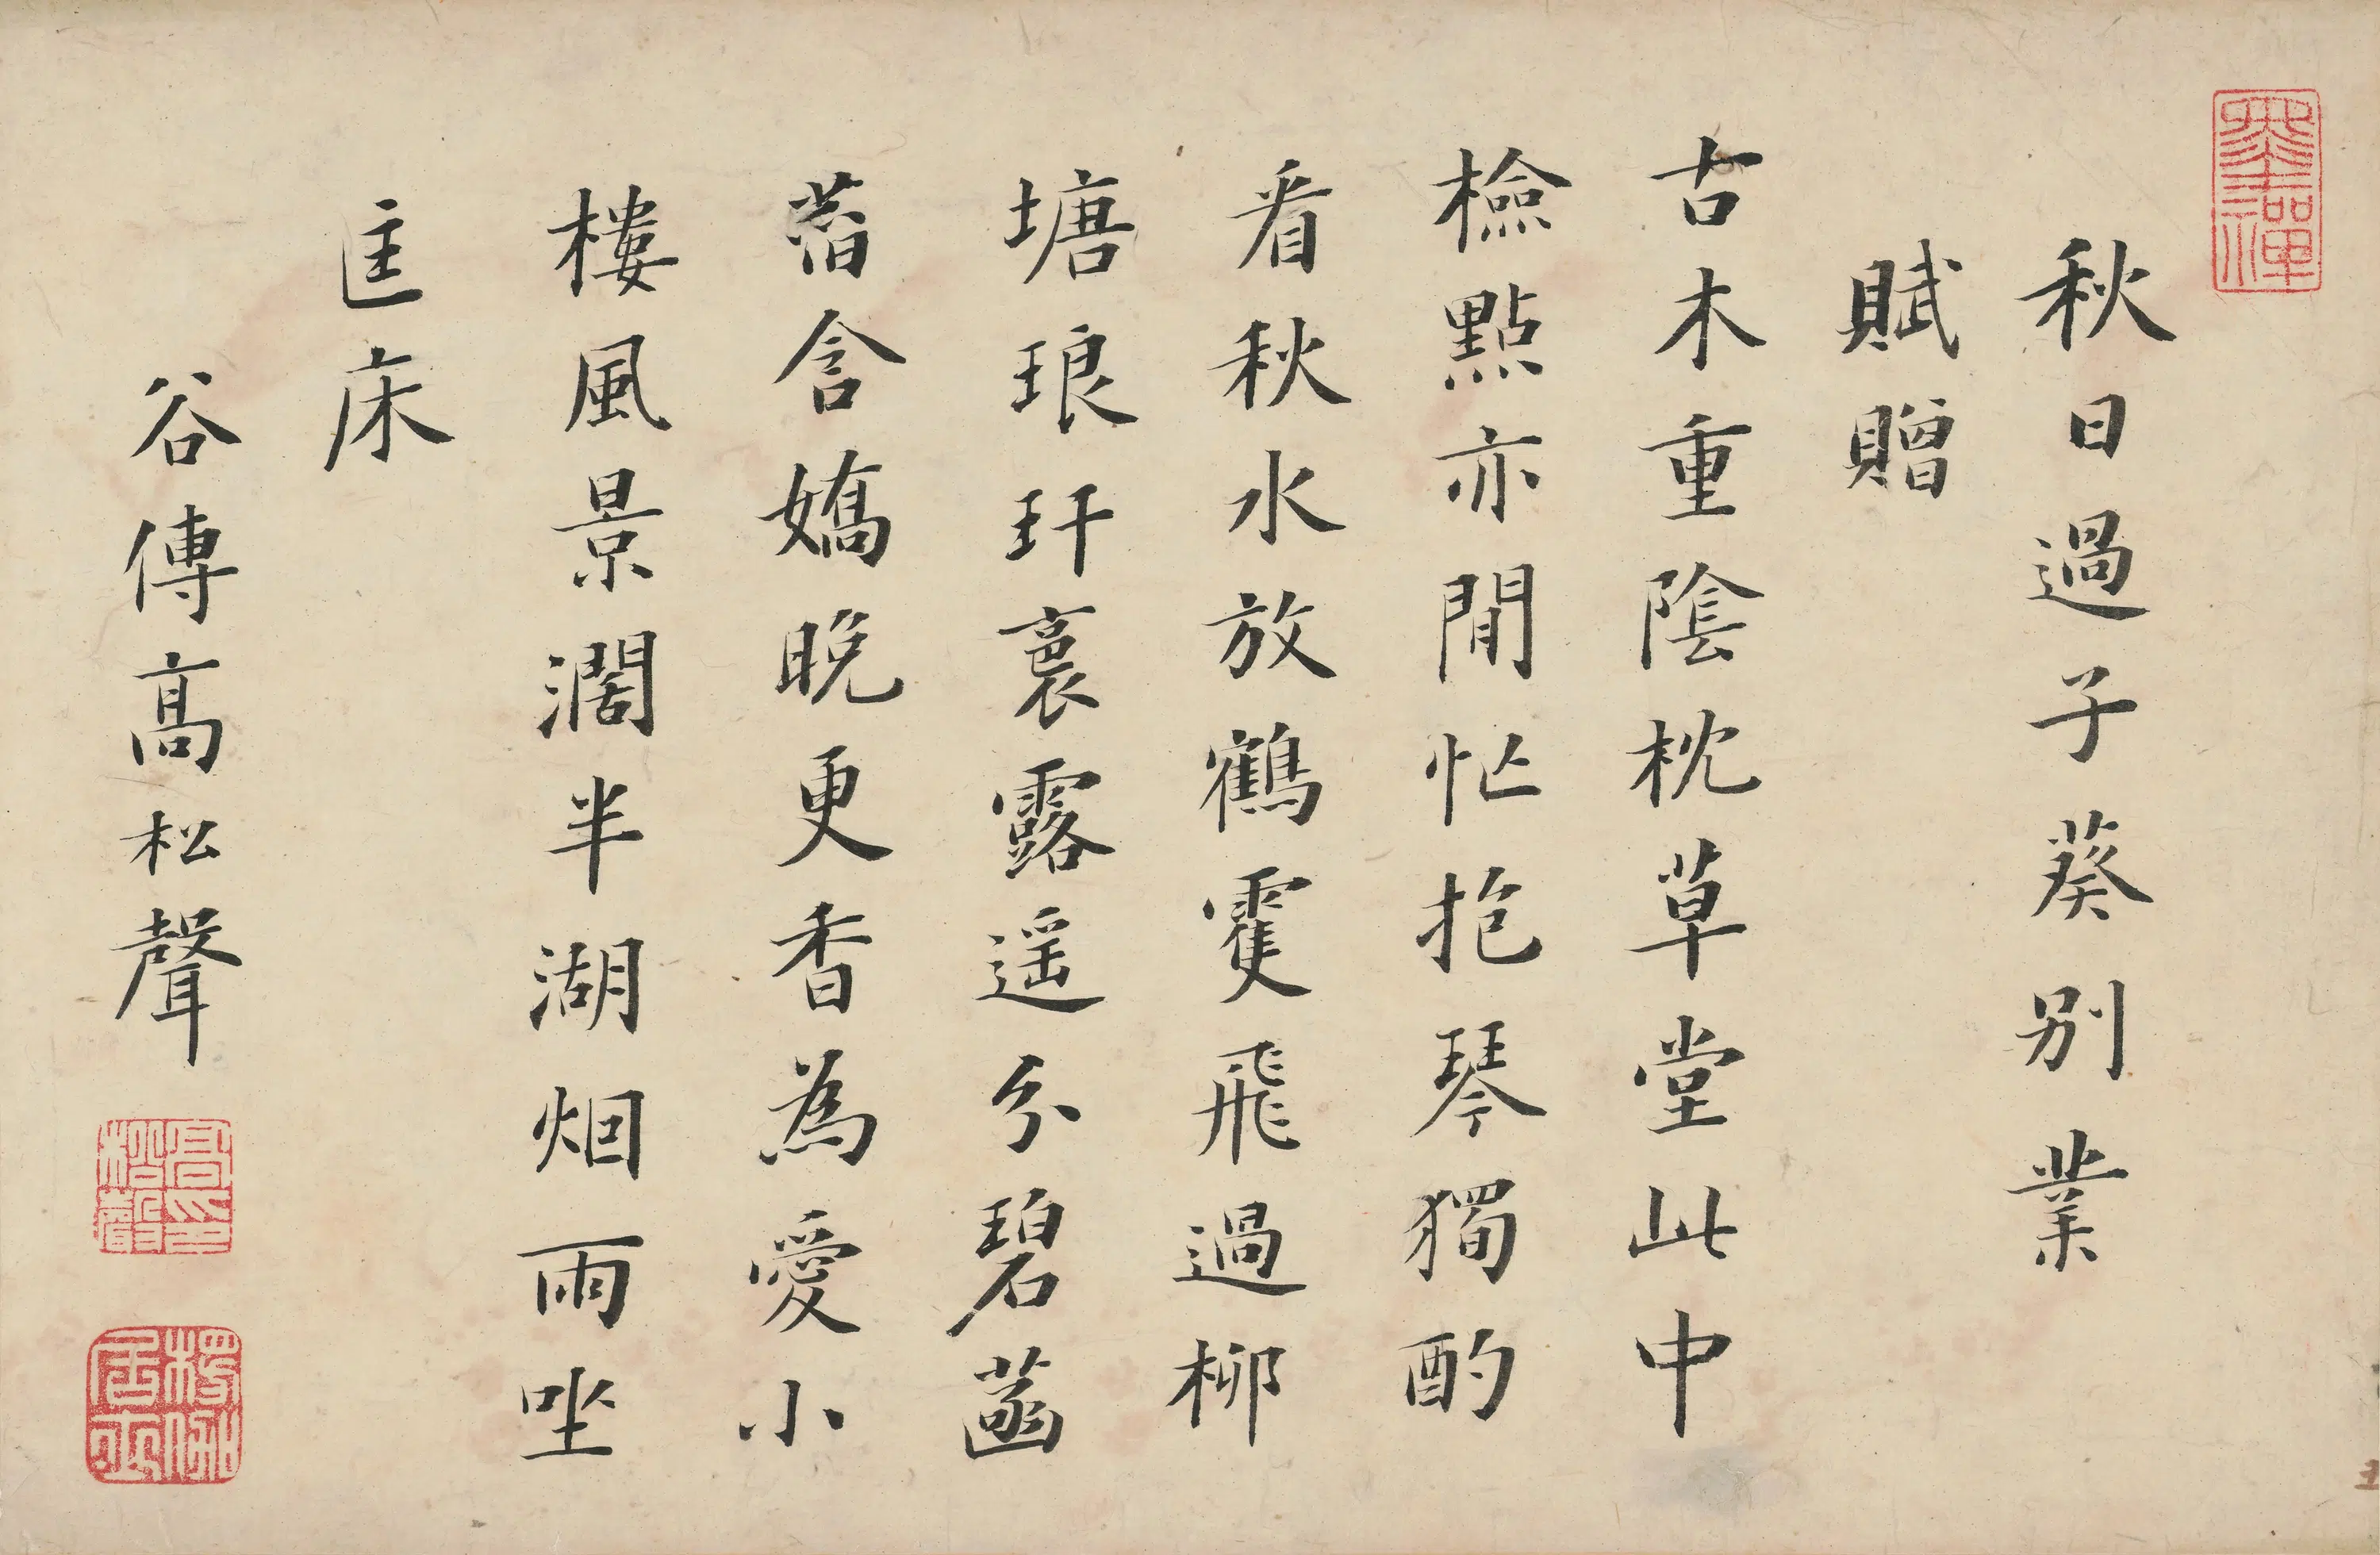 秋日過子葵別業
賦贈
古木重陰枕草堂此中
檢點亦閒忙抱琴獨酌
看秋水放鶴雙飛過柳
塘琅玕裹露遥分碧菡
萏含嬌晚更香為愛小
樓風景濶半湖烟雨坐
匡床
谷傳高松聲
高松聲印